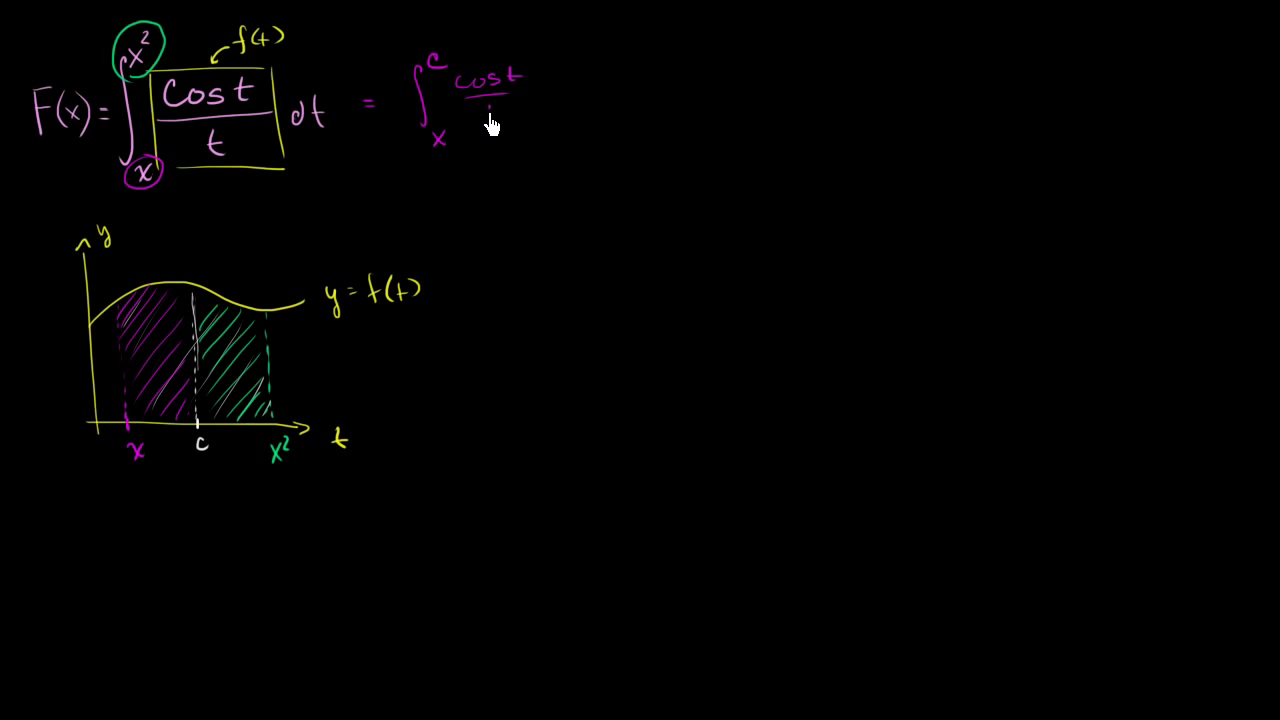 F(x) = ∫ₓ^{x²} cos t / t dt = ∫ₓ^c cos t
f(t)
y
y = f(t)
x c x² t